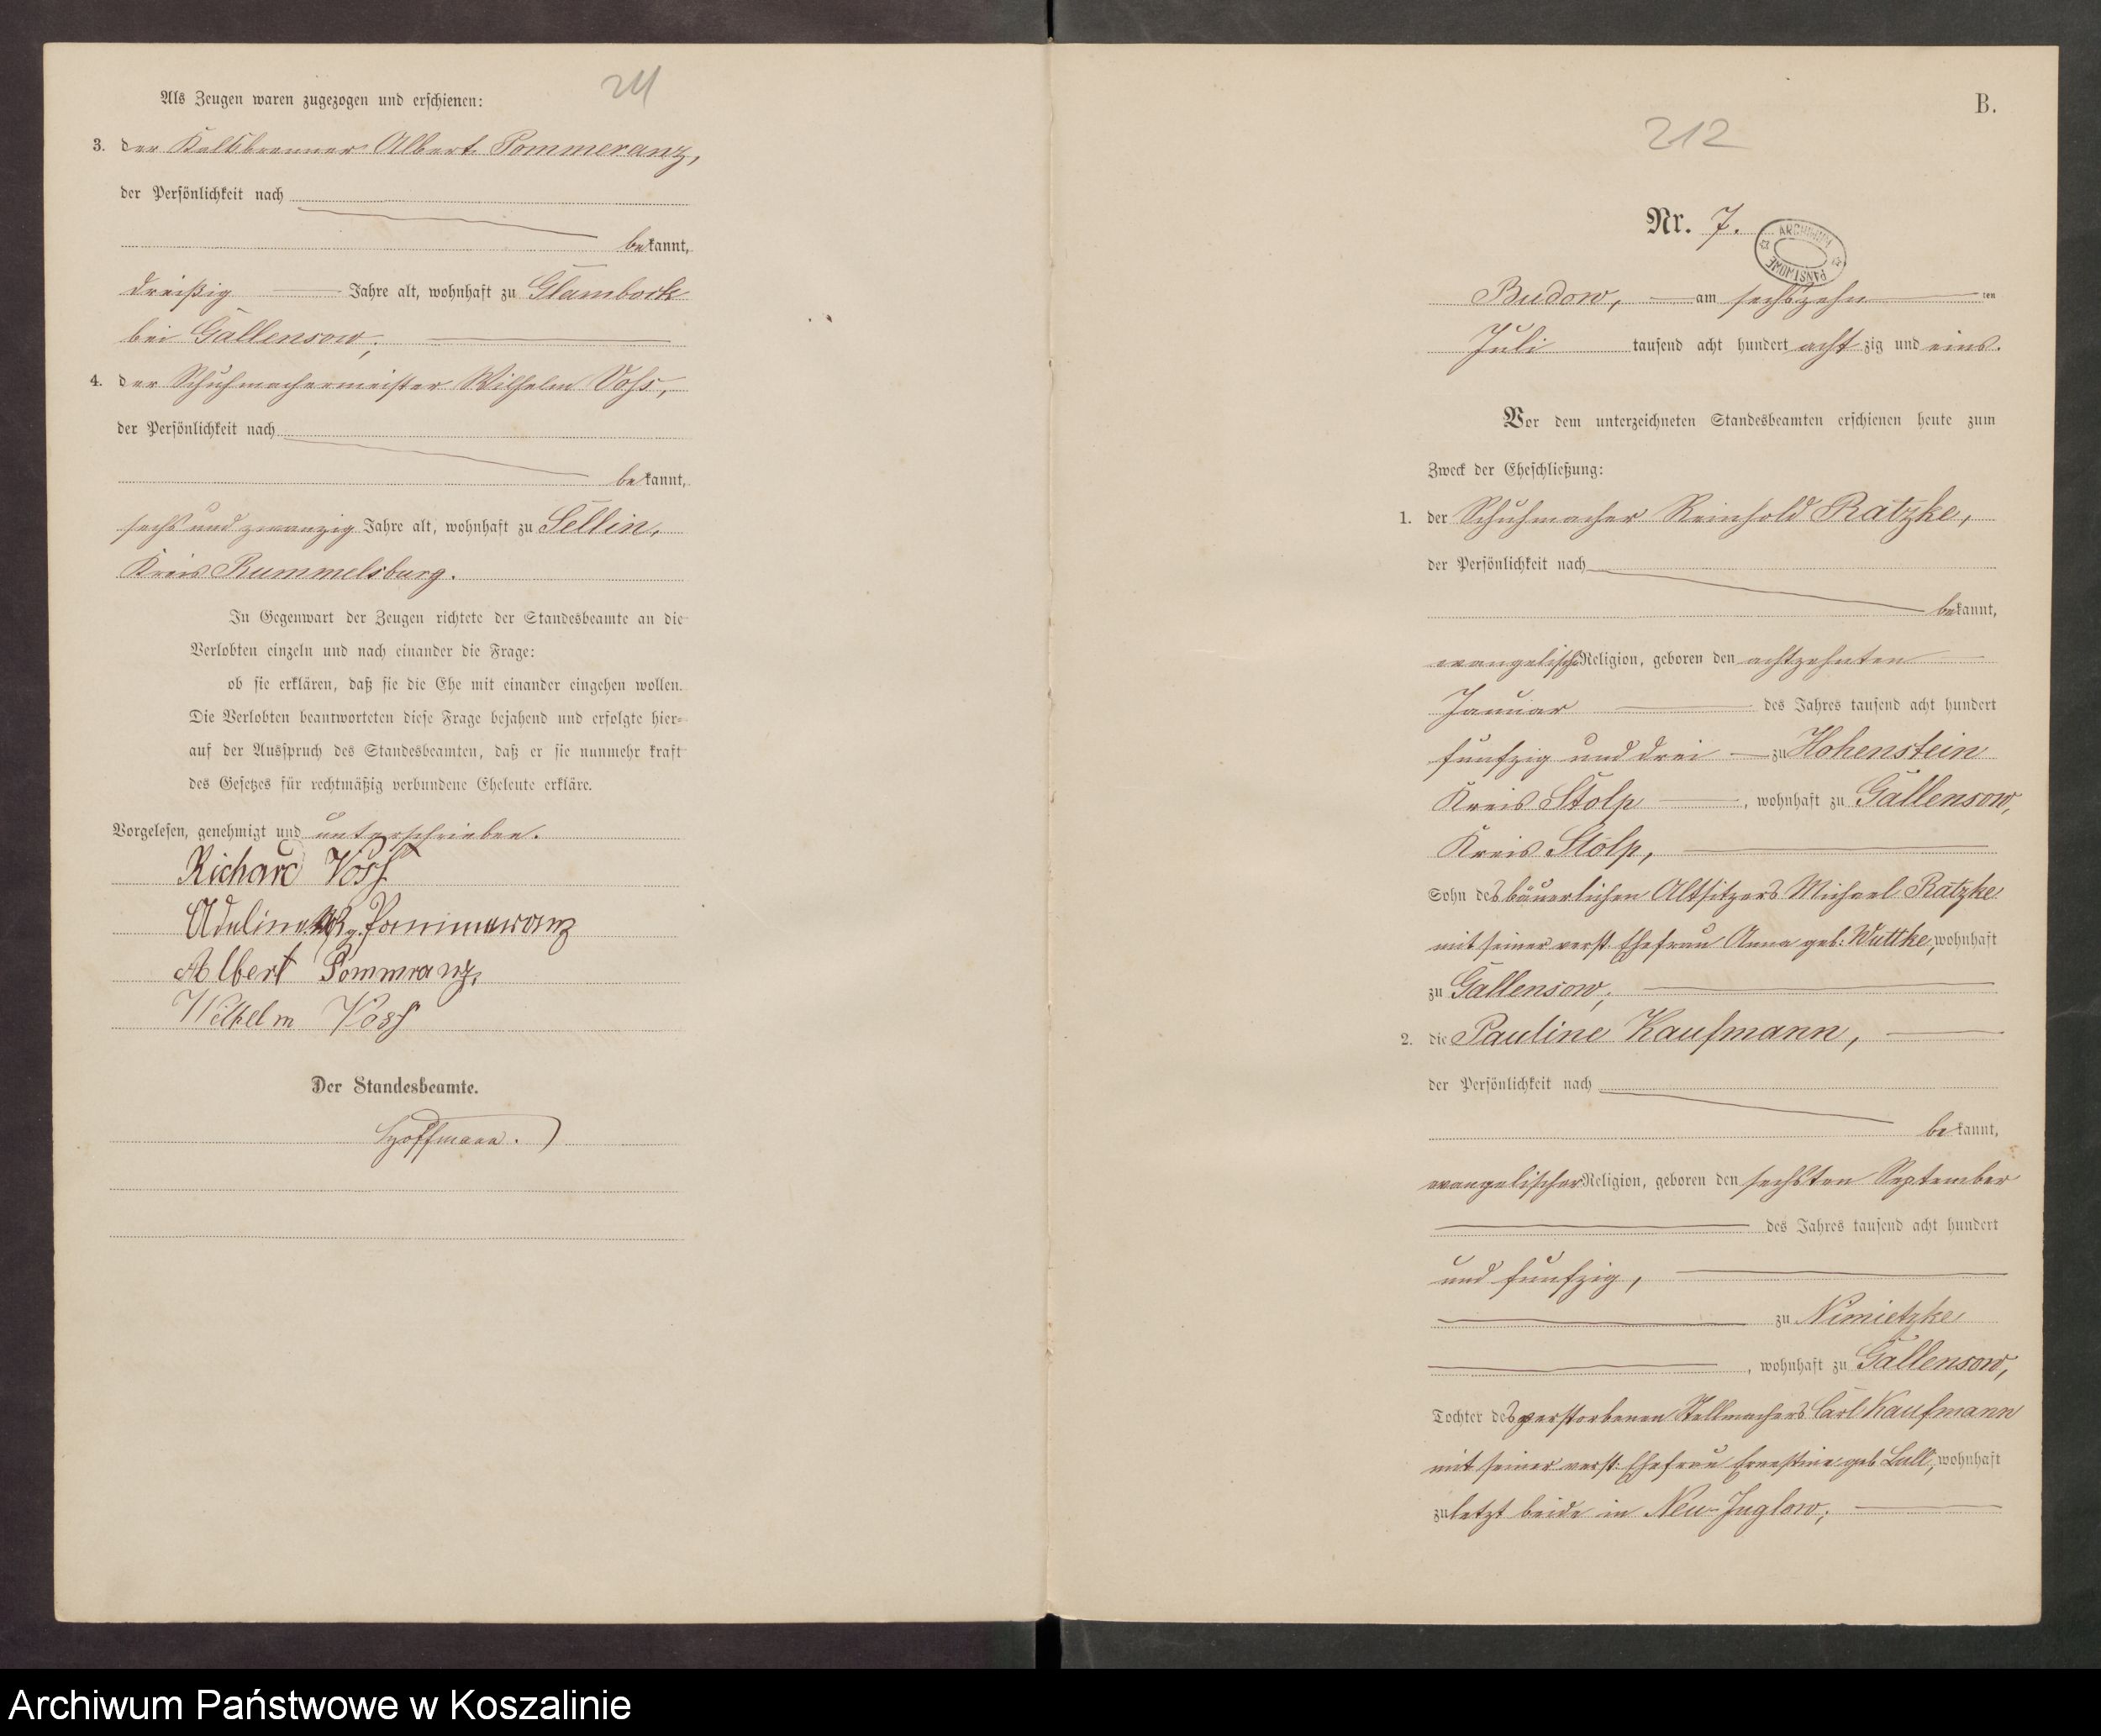 211
Als Zeugen waren zugezogen und erschienen:
3. der Kalkbrenner Albert Pommeranz,
der Persönlichkeit nach
bekannt,
dreißig Jahre alt, wohnhaft zu Glambock
bei Gallensow;
4. der Schuhmachermeister Wilhelm Voss,
der Persönlichkeit nach
bekannt,
sechs und zwanzig Jahre alt, wohnhaft zu Sellin,
Kreis Rummelsburg.
In Gegenwart der Zeugen richtete der Standesbeamte an die
Verlobten einzeln und nach einander die Frage:
ob sie erklären, daß sie die Ehe mit einander eingehen wollen.
Die Verlobten beantworteten diese Frage bejahend und erfolgte hier-
auf der Ausspruch des Standesbeamten, daß er sie nunmehr kraft
des Gesetzes für rechtmäßig verbundene Eheleute erkläre.
Vorgelesen, genehmigt und unterschrieben.
Richard Voss
Adeline g. Pommeranz
Albert Pommranz,
Wilhelm Voss
Der Standesbeamte.
Hoffmann.
B.
212
Nr. 7.
ARCHIWUM PAŃSTWOWE
Budow, am sechszehnten
Juli tausend acht hundert achtzig und eins.
Vor dem unterzeichneten Standesbeamten erschienen heute zum
Zweck der Eheschließung:
1. der Schuhmacher Reinhold Ratzke,
der Persönlichkeit nach
bekannt,
evangelischer Religion, geboren den achtzehnten
Januar des Jahres tausend acht hundert
funfzig und drei zu Hohenstein
Kreis Stolp, wohnhaft zu Gallensow,
Kreis Stolp,
Sohn des bäuerlichen Altsitzers Michael Ratzke
mit seiner verst. Ehefrau Anna geb: Wuttke, wohnhaft
zu Gallensow;
2. die Pauline Kaufmann,
der Persönlichkeit nach
bekannt,
evangelischer Religion, geboren den sechsten September
des Jahres tausend acht hundert
und funfzig,
zu Nimietzke
, wohnhaft zu Gallensow,
Tochter des verstorbenen Stellmachers Carl Kaufmann
mit seiner verst: Ehefrau Ernestine geb Lull, wohnhaft
zuletzt beide in Neu-Juglow;
Archiwum Państwowe w Koszalinie